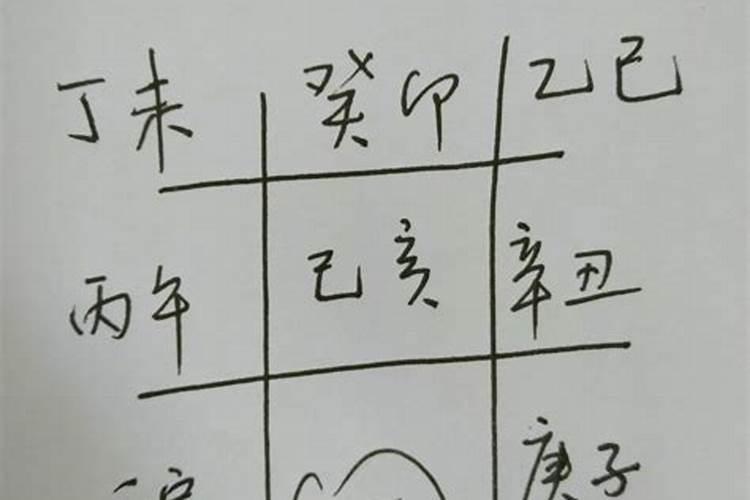 丁未 癸卯 乙巳
丙午 己亥 辛丑
庚子